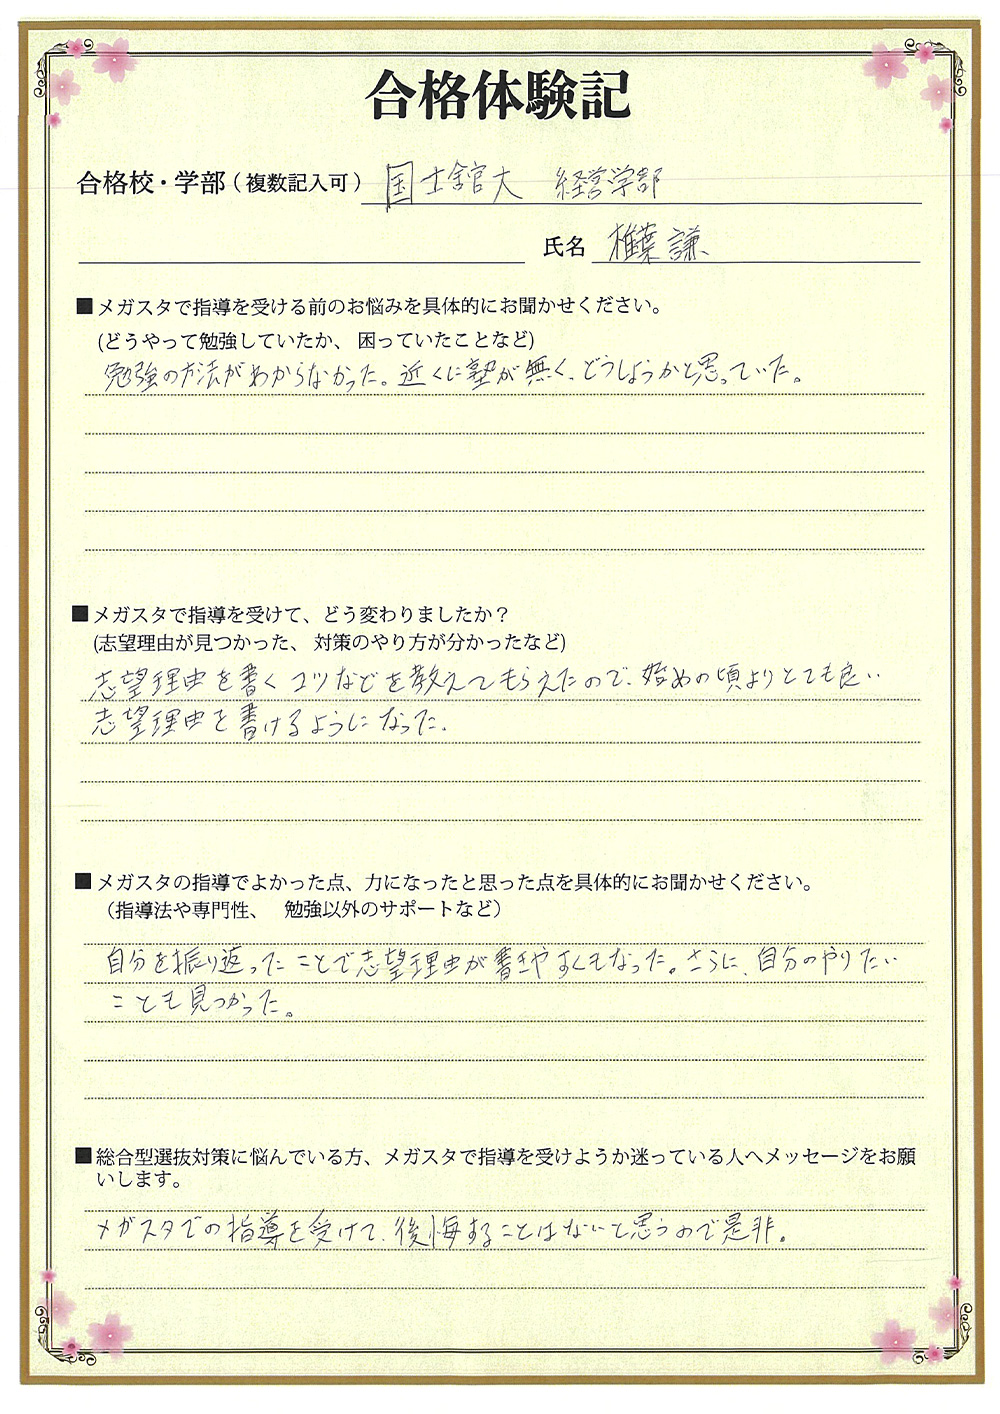 合格体験記
合格校・学部（複数記入可） 国士舘大 経営学部
氏名 椎葉 謙
■メガスタで指導を受ける前のお悩みを具体的にお聞かせください。
(どうやって勉強していたか、困っていたことなど)
勉強の方法がわからなかった。近くに塾が無く、どうしようかと思っていた。
■メガスタで指導を受けて、どう変わりましたか？
(志望理由が見つかった、対策のやり方が分かったなど)
志望理由を書くコツなどを教えてもらえたので、始めの頃よりとても良い
志望理由を書けるようになった。
■メガスタの指導でよかった点、力になったと思った点を具体的にお聞かせください。
（指導法や専門性、 勉強以外のサポートなど）
自分を振り返ったことで志望理由が書きやすくもなった。さらに、自分のやりたい
ことも見つかった。
■総合型選抜対策に悩んでいる方、メガスタで指導を受けようか迷っている人へメッセージをお願
いします。
メガスタでの指導を受けて、後悔することはないと思うので是非。